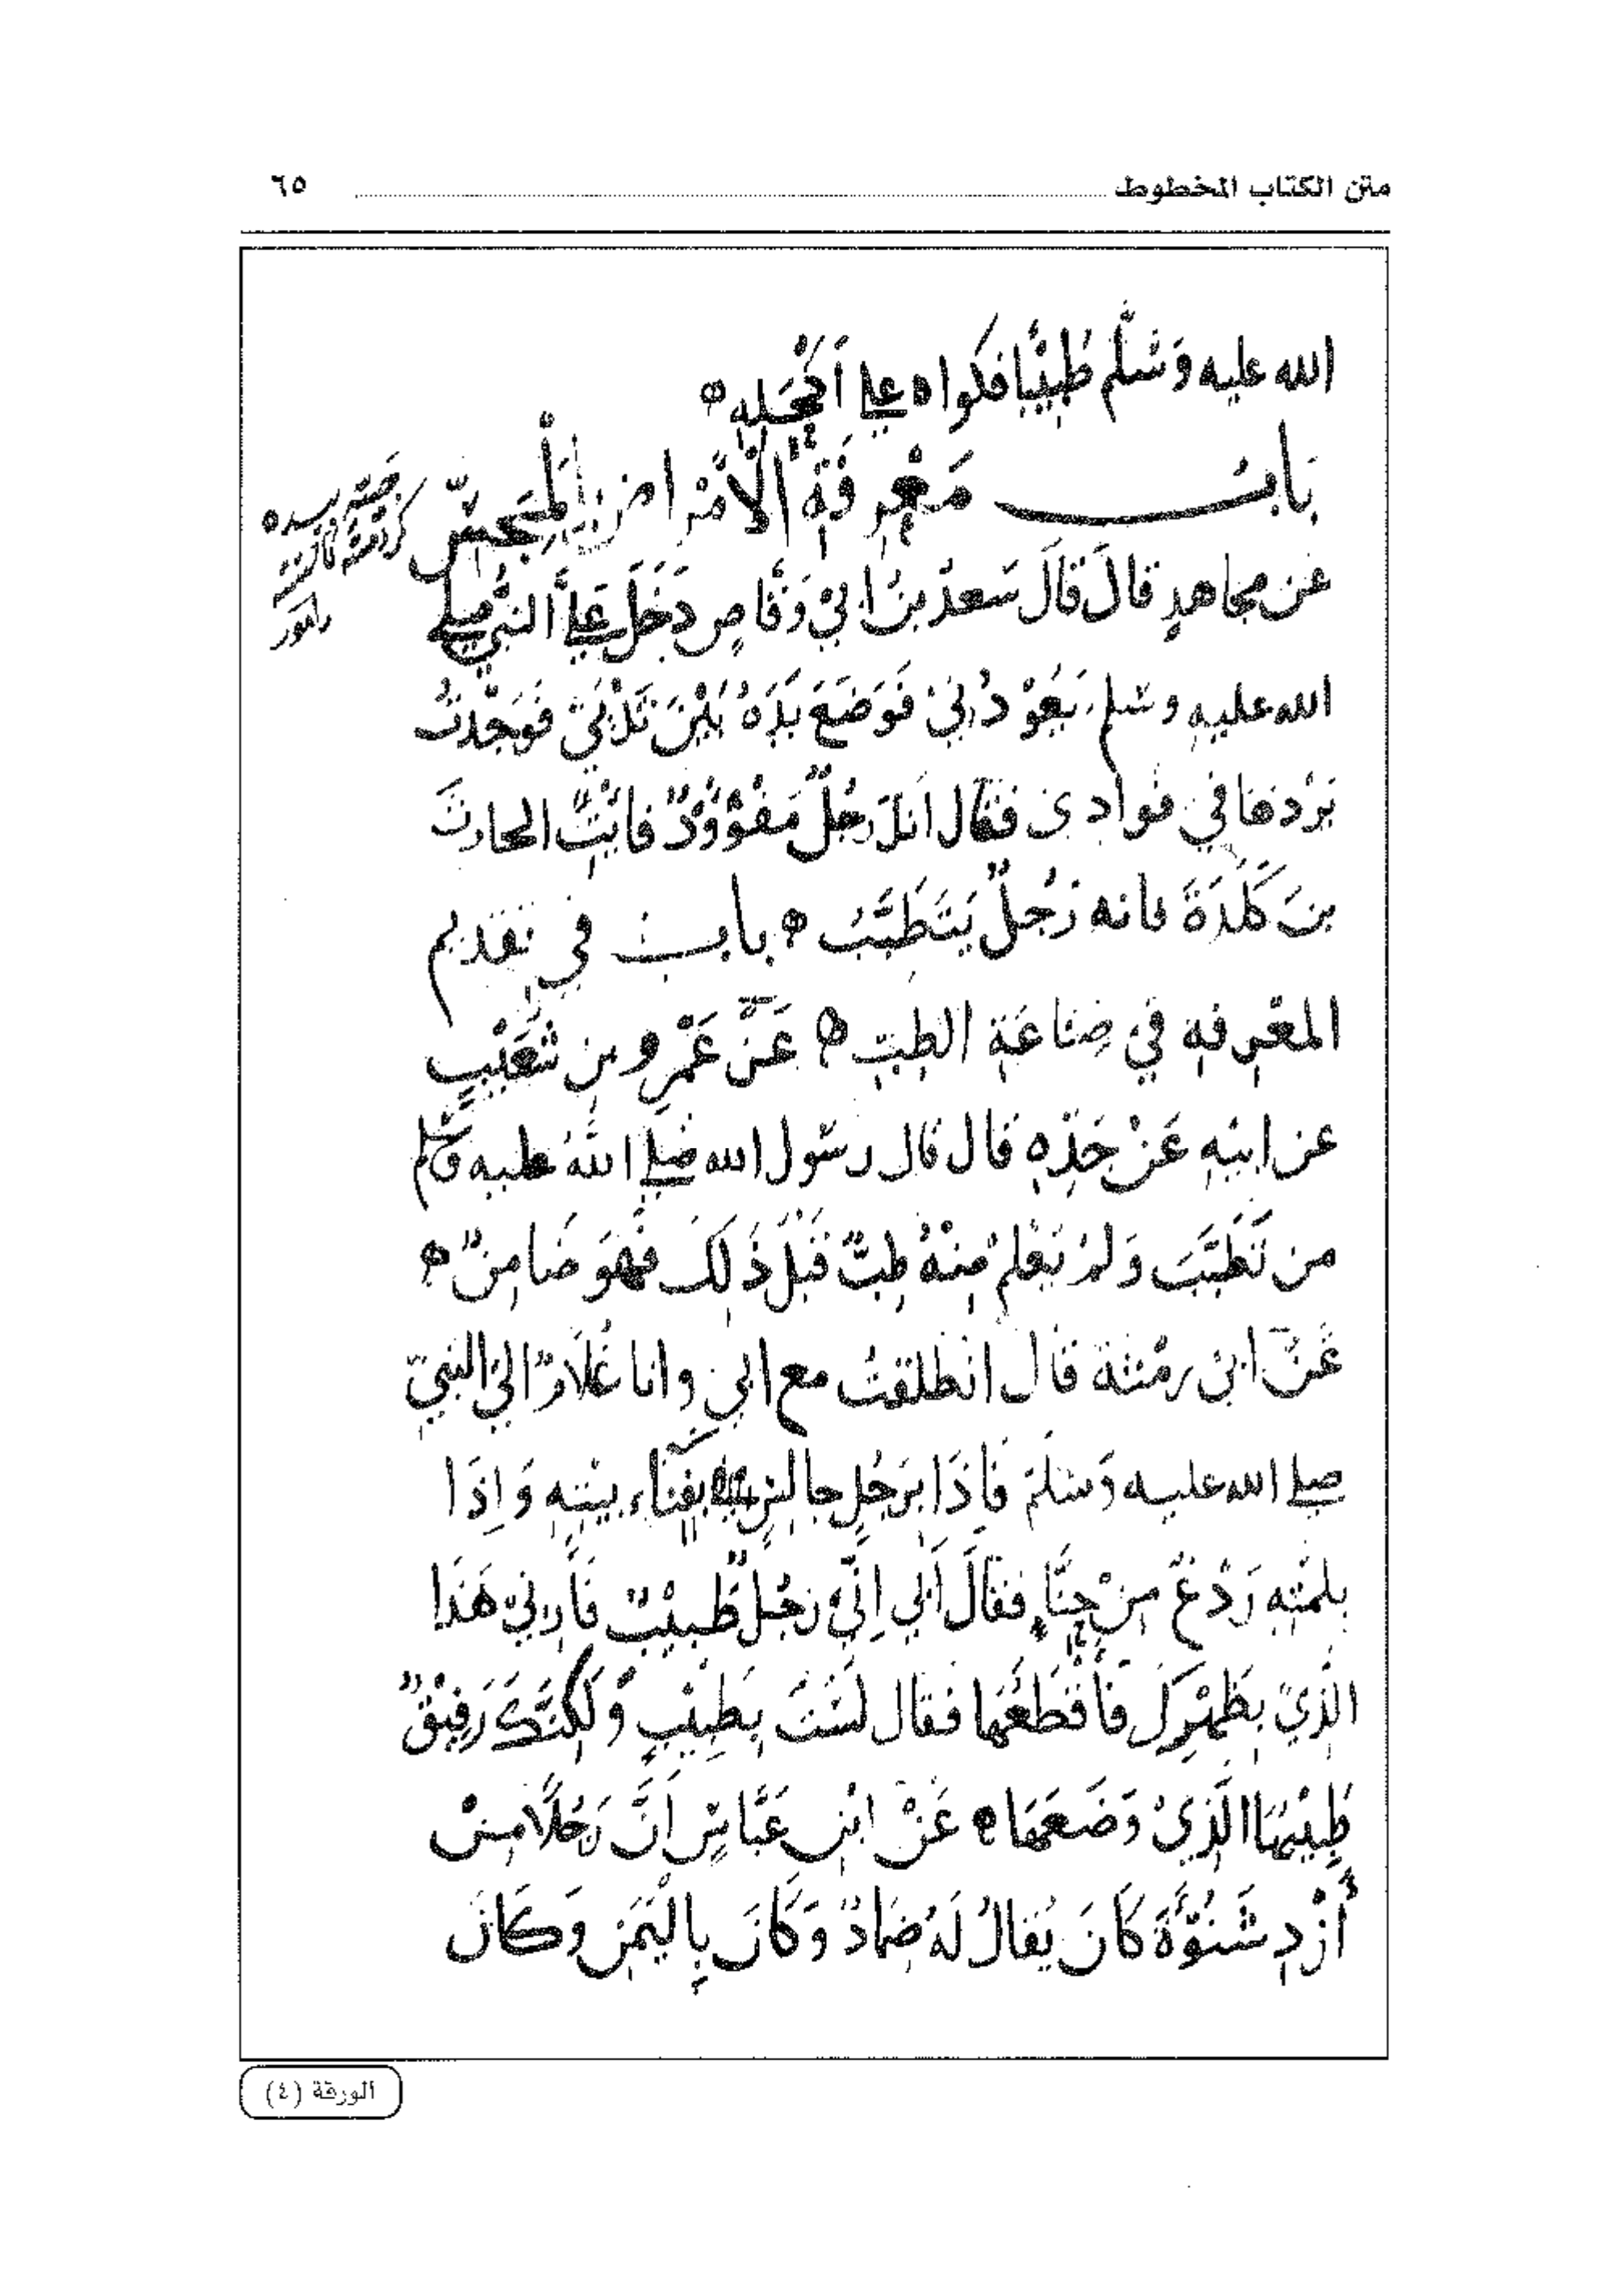 متن الكتاب المخطوط ٦٥
الله عليه وَسَلَّم طَبِيْبًا فكواه على اَكْحَلِه
بَابُ مَعْرِفَةِ الْاَمْرَاضِ بِالْمَجَسِّ
عن مجاهدٍ قالَ قالَ سَعدُ بنُ ابيْ وَقَّاصٍ دَخَلَ عَلَيَّ النَّبيُّ صلى
الله عليه وسلم يَعُوْدُنِيْ فَوَضَعَ يَدَهُ بَيْنَ ثَدْيَيَّ فَوَجَدْتُ
بَرْدَهَا في فوادى فقال انك رَجُلٌ مَفْؤُوْدٌ فَائْتِ الحارثَ
بنَ كَلَدَةَ فانه رَجُلٌ يَتَطَبَّبُ بابٌ في تقديم
المعْرِفةِ فيْ صِنَاعَةِ الطبِّ عَنْ عَمْرِو بن شُعَيْبٍ
عن ابيْهِ عَنْ جَدِّهِ قال قال رسُول الله صَلى اللهُ عليه وسلم
من تَطَبَّبَ وَلمْ يَعْلم مِنْهُ طِبٌّ قَبْلَ ذَلِكَ فَهُوَ ضَامِنٌ
عَنْ ابيْ رمْثَة قال انْطلقتُ مع ابي وانا غُلَامٌ اليْ النبيّ
صلى الله عليه وَسَلمَ فَاِذَا بَرَجُلٍ جالسٍ بِفِنَاءِ بيْتِهِ وَاِذَا
بلمّتِهِ رَدْعٌ مِنْ حِنَّاءٍ فقالَ اَبي اِنِّيْ رَجُلٌ طَبيْبٌ فَاَرِنِيْ هَذَا
الذيْ بِظَهْرِكَ فَاَقْطَعُهَا فقال لَسْتَ بِطَبِيْبٍ وَلَكِنَّكَ رَفِيْقٌ
طَبِيْبُهَا الَّذِيْ وَضَعَهَا عَنْ ابْنِ عَبَّاسٍ اَنَّ رَجُلًا مِنْ
أَزْدِ شَنُوْءَةَ كَانَ يُقَالُ لَهُ ضِمَادٌ وَكَانَ بِالْيَمَنِ وَكَانَ
الورقة (٤)